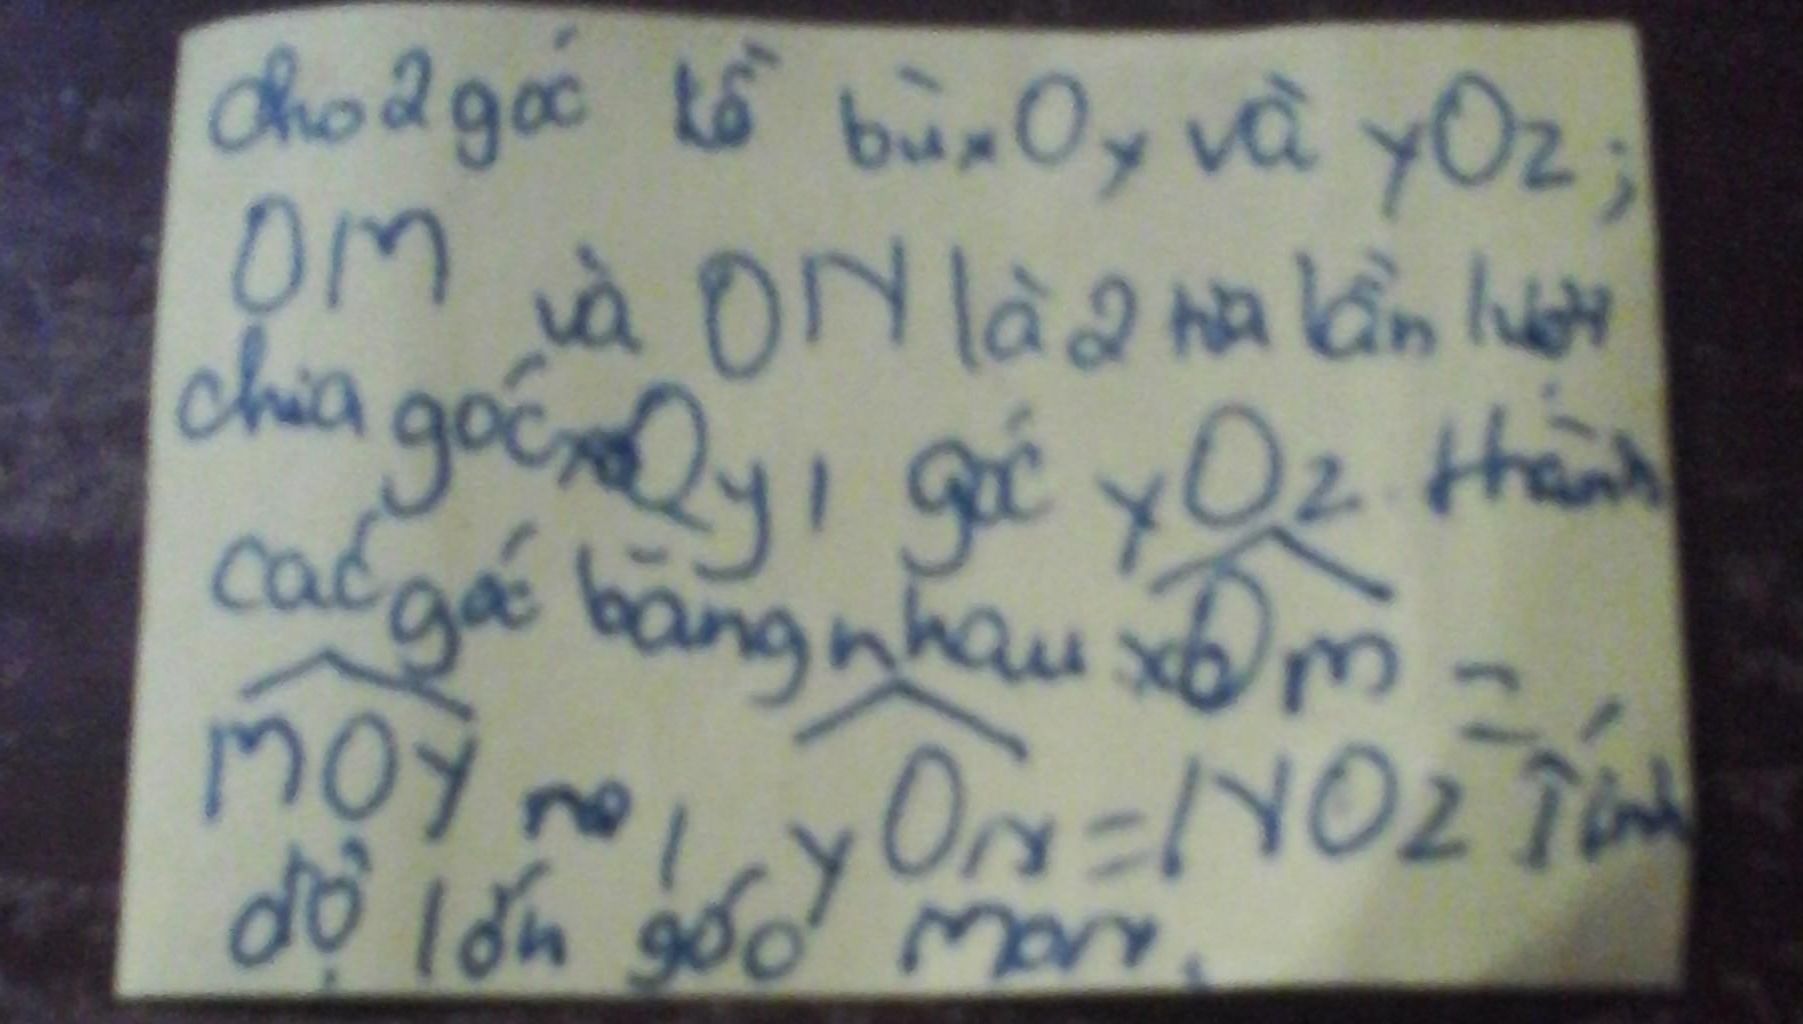 cho 2 góc kề bù xOy và yOz;
OM và ON là 2 tia lần lượt
chia góc xOy, góc yOz thành
các góc bằng nhau xOM =
MOY , yON = NOz Tính
độ lớn góc MON.